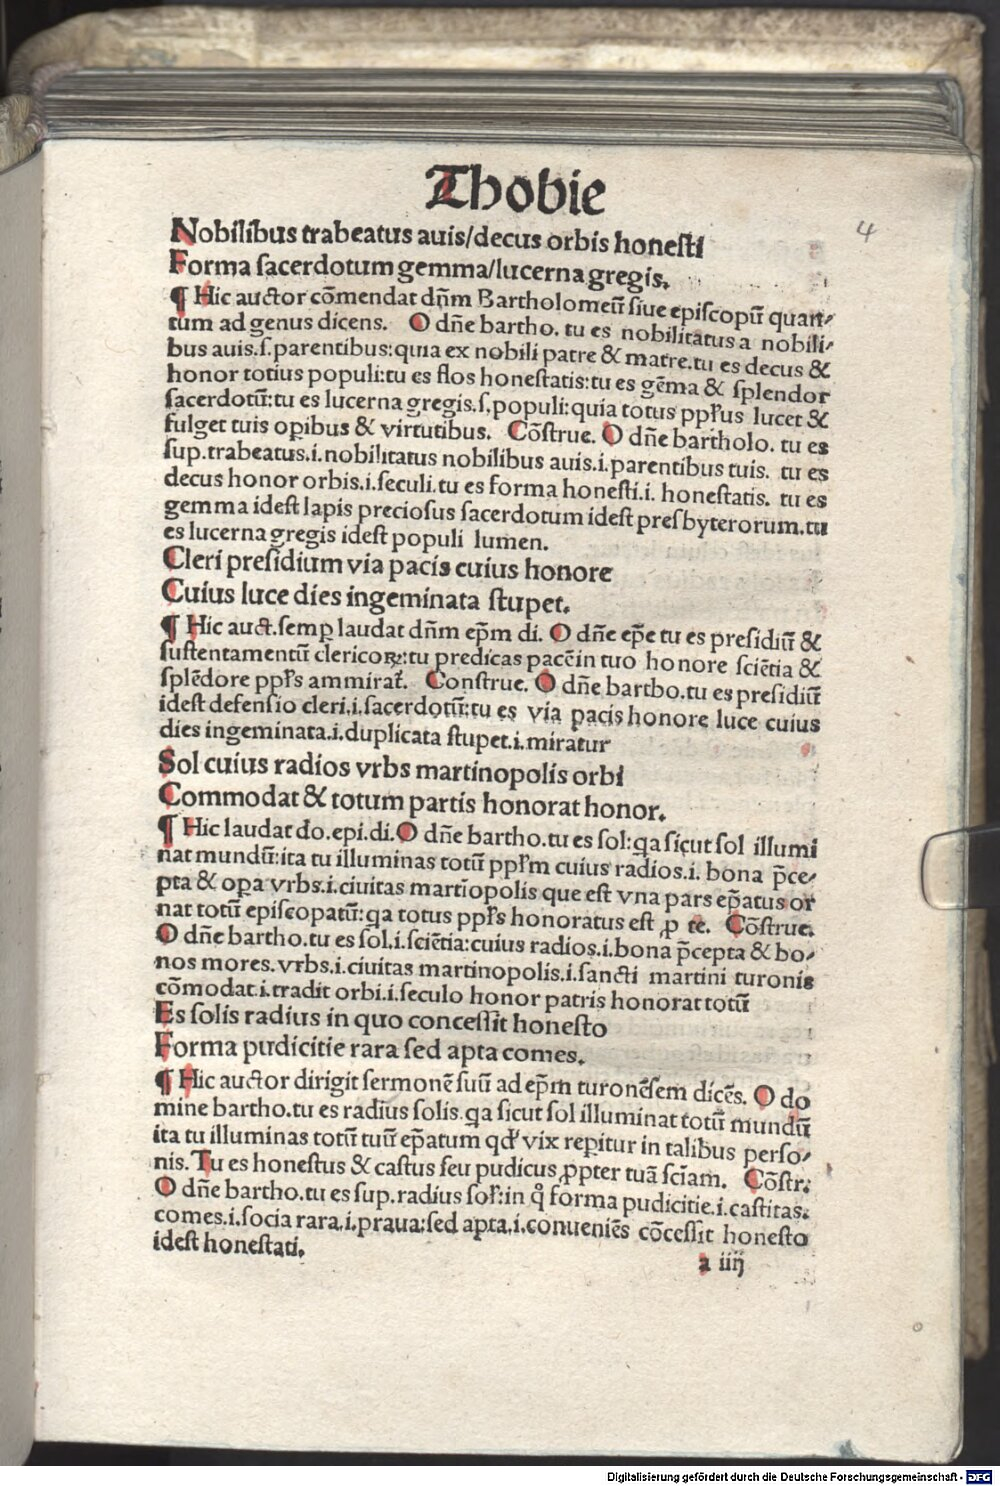 Thobie
4
Nobilibus trabeatus auis/decus orbis honesti
Forma sacerdotum gemma/lucerna gregis.
¶ Hic auctor cōmendat dn̄m Bartholomeū siue episcopū quan⸗
tum ad genus dicens. O dn̄e bartho. tu es nobilitatus a nobili⸗
bus auis.s.parentibus:quia ex nobili patre & matre.tu es decus &
honor totius populi:tu es flos honestatis:tu es gēma & splendor
sacerdotū:tu es lucerna gregis.s.populi:quia totus ppl̄us lucet &
fulget tuis opibus & virtutibus. Cōstrue. O dn̄e bartholo. tu es
sup.trabeatus.i.nobilitatus nobilibus auis.i.parentibus tuis. tu es
decus honor orbis.i.seculi.tu es forma honesti.i. honestatis. tu es
gemma idest lapis preciosus sacerdotum idest presbyterorum.tu
es lucerna gregis idest populi lumen.
Cleri presidium via pacis cuius honore
Cuius luce dies ingeminata stupet.
¶ Hic auct.semꝑ laudat dn̄m ep̄m di. O dn̄e ep̄e tu es presidiū &
sustentamentū clericoꝝ:tu predicas pacēin tuo honore sciētia &
splēdore ppl̄s ammirat̄. Construe. O dn̄e bartho.tu es presidiū
idest defensio cleri.i.sacerdotū:tu es via pacis honore luce cuius
dies ingeminata.i.duplicata stupet.i.miratur
Sol cuius radios vrbs martinopolis orbi
Commodat & totum partis honorat honor.
¶ Hic laudat do.epi.di.O dn̄e bartho.tu es sol:qa sicut sol illumi
nat mundū:ita tu illuminas totū ppl̄m cuius radios.i. bona p̄ce⸗
pta & oꝑa vrbs.i.ciuitas martiopolis que est vna pars ep̄atus or
nat totū episcopatū:qa totus ppl̄s honoratus est ꝓ te. Cōstrue.
O dn̄e bartho.tu es sol.i.sciētia:cuius radios.i.bona p̄cepta & bo⸗
nos mores.vrbs.i.ciuitas martinopolis.i.sancti martini turonis
cōmodat.i.tradit orbi.i.seculo honor patris honorat totū
Es solis radius in quo concessit honesto
Forma pudicitie rara sed apta comes.
¶ Hic auctor dirigit sermonē suū ad ep̄m turonēsem dicēs. O do
mine bartho.tu es radius solis.qa sicut sol illuminat totū mundū
ita tu illuminas totū tuū ep̄atum qd' vix reꝑitur in talibus perso⸗
nis.Tu es honestus & castus seu pudicus ꝓpter tuā sciam. Cōstr.
O dn̄e bartho.tu es sup.radius sol':in q̊ forma pudicitie.i.castitas.
comes.i.socia rara.i.praua:sed apta.i.conueniēs cōcessit honesto
idest honestati.
a iiij
Digitalisierung gefördert durch die Deutsche Forschungsgemeinschaft - DFG